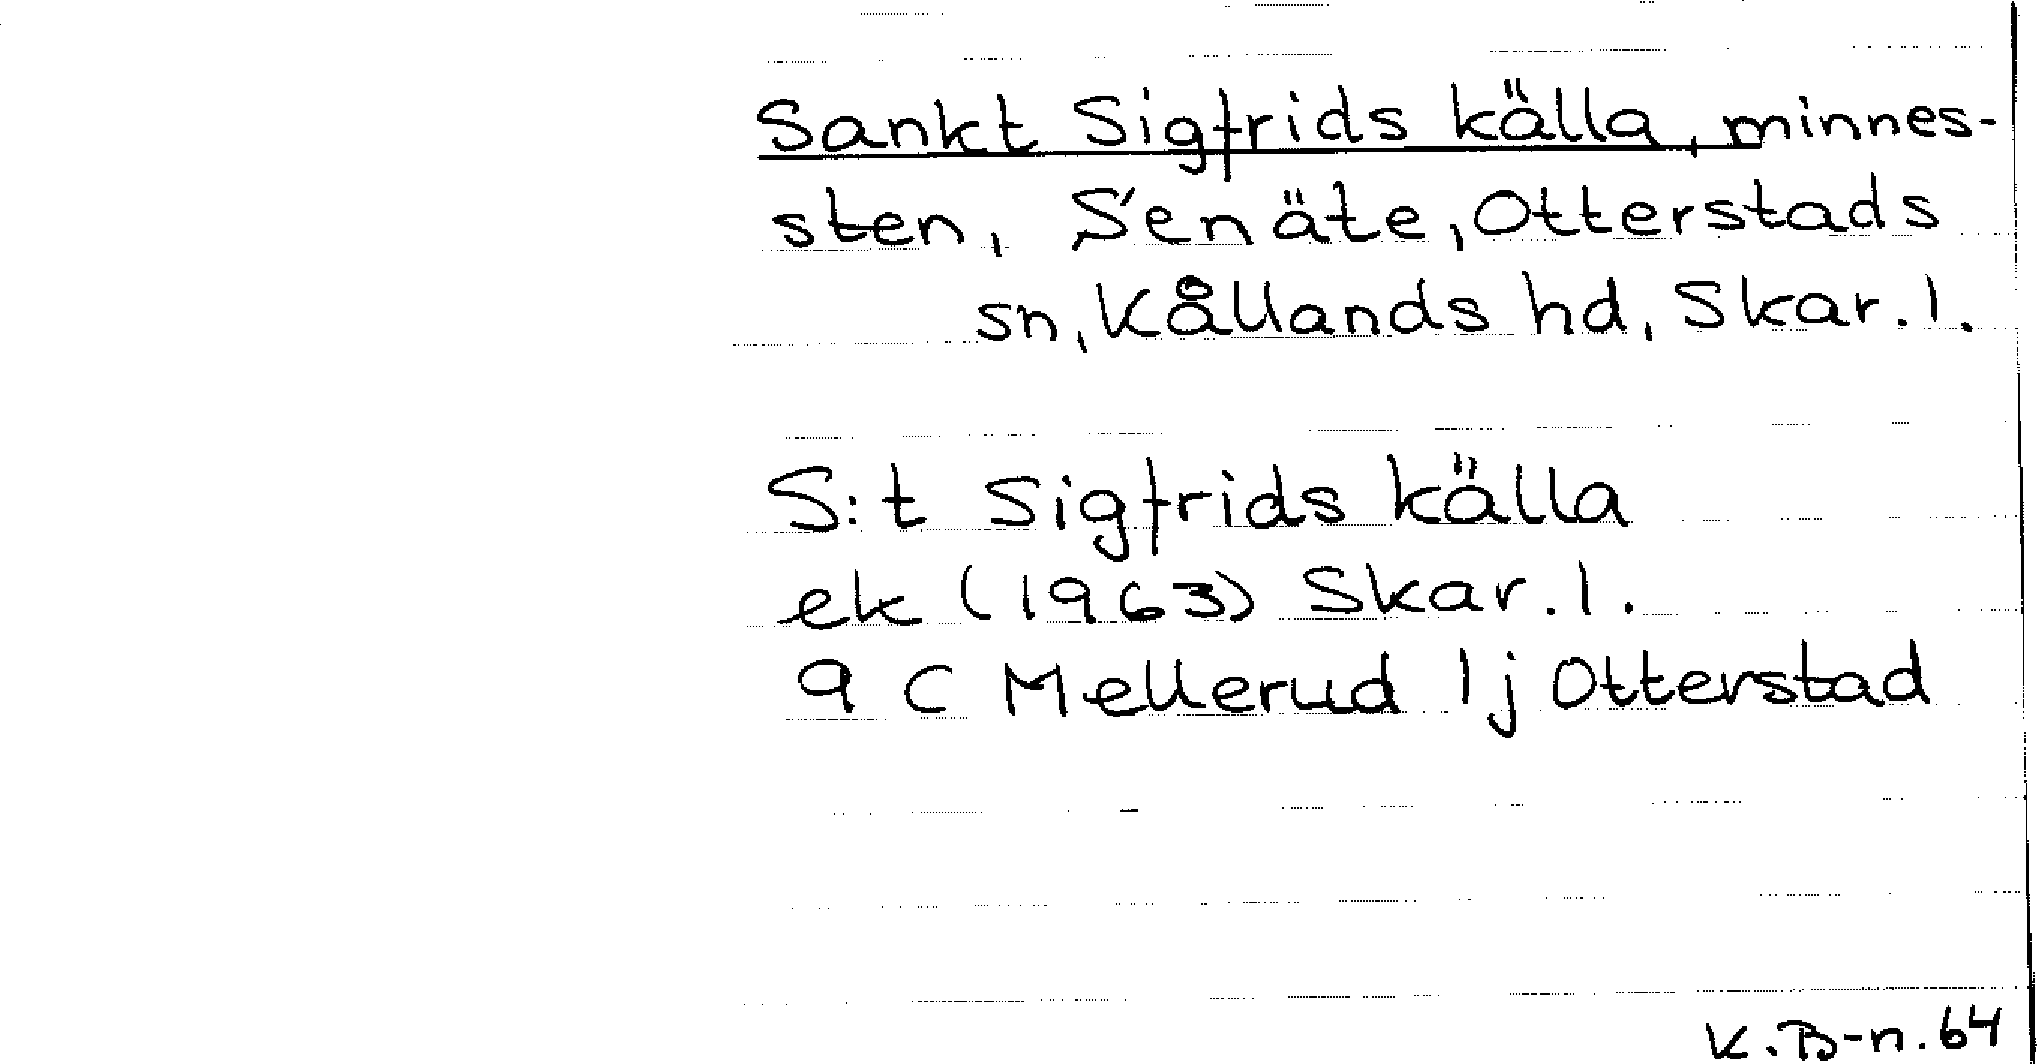 Sankt Sigfrids källa, minnes-
sten, Senäte, Otterstads
sn, Kållands hd, Skar. l.
S:t Sigfrids källa
ek (1963) Skar. l.
9 C Mellerud 1j Otterstad
K. B-n. 64